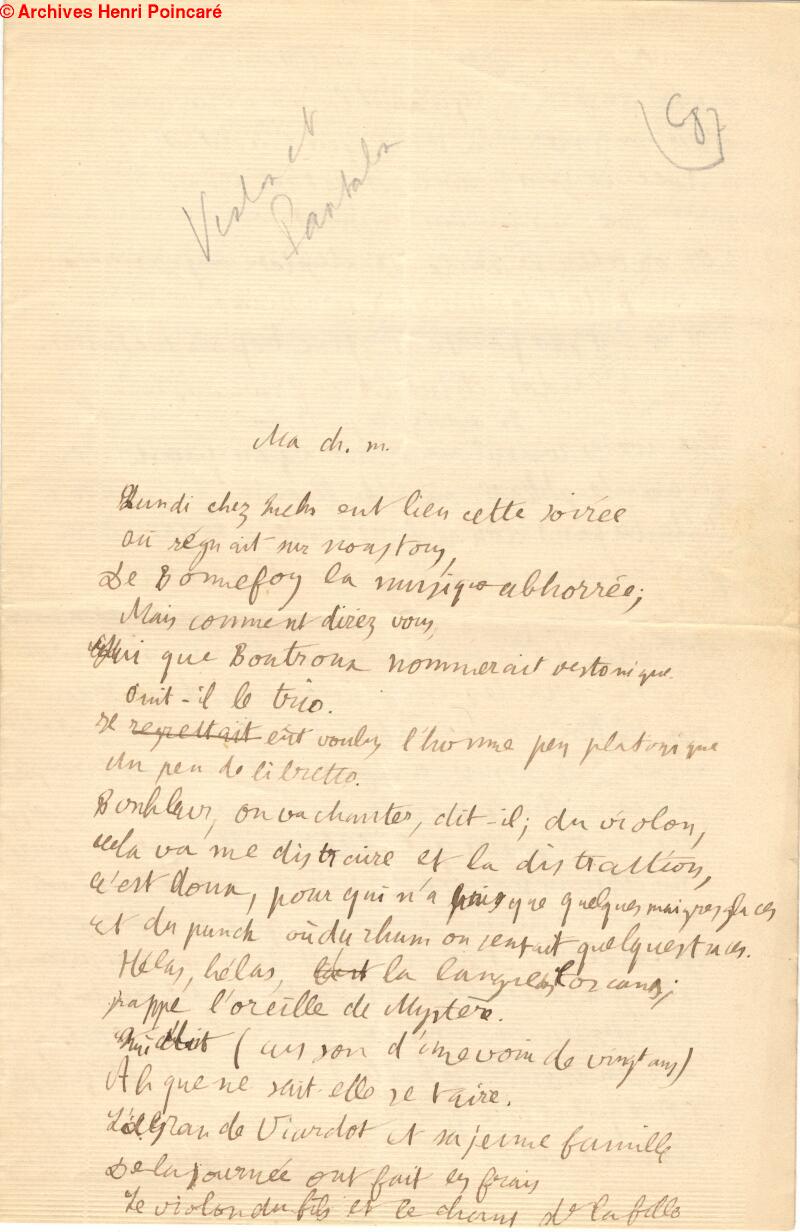 © Archives Henri Poincaré
C87
Violon et
Pantalon
Ma ch. m.
Lundi chez eut lieu cette soirée
où régnait sur nous tous,
De Bonnefoy la musique abhorrée;
Mais comment direz vous,
que Boutroux nommerait
ouit-il le trio.
Il regrettait eût voulu l'homme peu platonique
Un peu de libretto.
Bonheur, on va chanter, dit-il; du violon,
cela va me distraire et la distraction,
c'est doux, pour qui n'a pris que quelques maigres glaces
et du punch où du rhum on sentait quelques traces.
Hélas, hélas, la langue toscane;
frappe l'oreille de Mystère.
(au son d'une voix de vingt ans)
Ah que ne sait-elle se taire.
Viardot et sa jeune famille
De la journée ont fait les frais
Le violon du fils et le chant de la fille